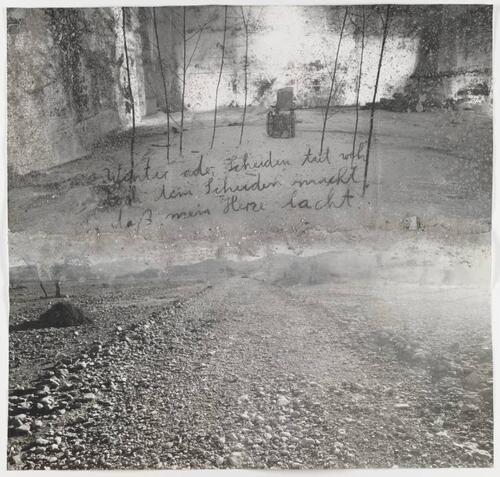 Winter ade, Scheiden tut weh
dein Scheiden macht
daß mein Herze lacht